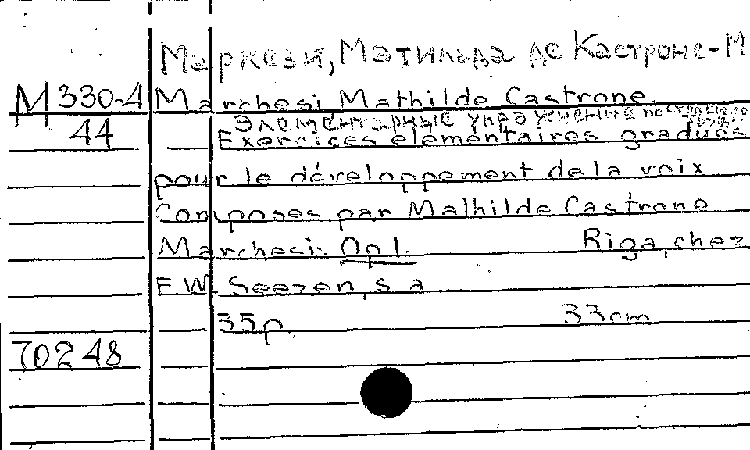 Маркези, Матильда де Кастроне-М
M 330-4 Marchesi Mathilde Castrone
44
Элементарные упражнения
Exercices élémentaires gradués
pour le développement de la voix
Composés par Mathilde Castrone
Marchesi. Op 1. Riga, chez
F.W. Seezen, s a
35p. 33cm
70248